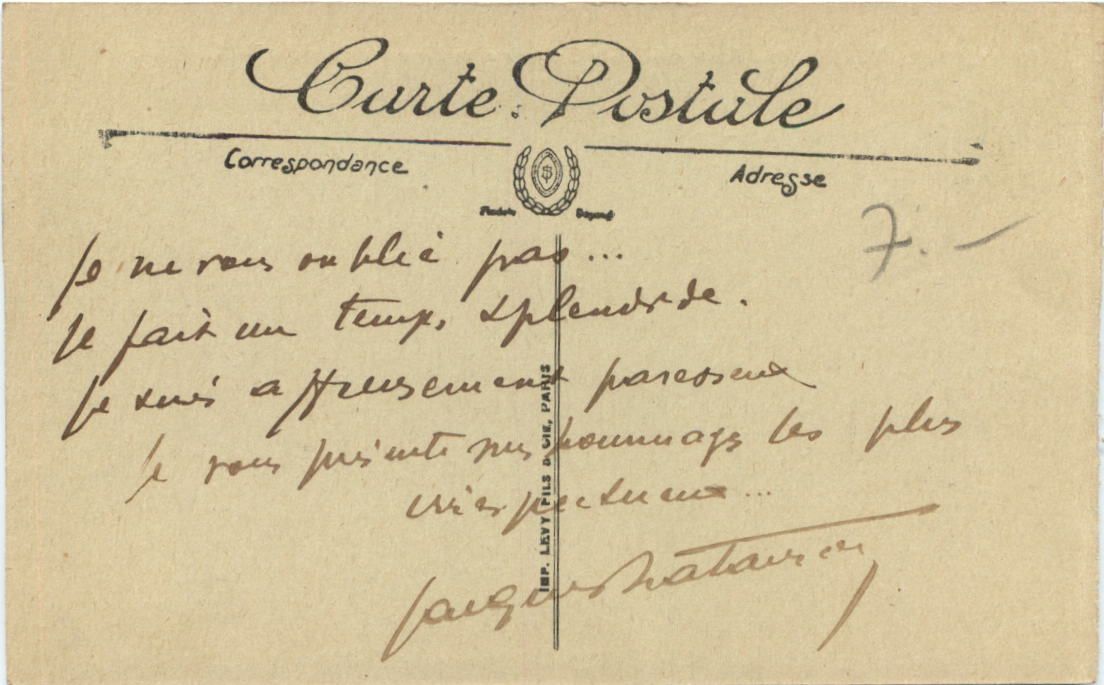 Carte Postale
Correspondance
Adresse
7.–
Je ne vous oublie pas...
Il fait un temps splendide.
Je suis affreusement paresseux
Je vous présente mes hommages les plus
respectueux...
Jacques
IMP. LEVY FILS & CIE, PARIS